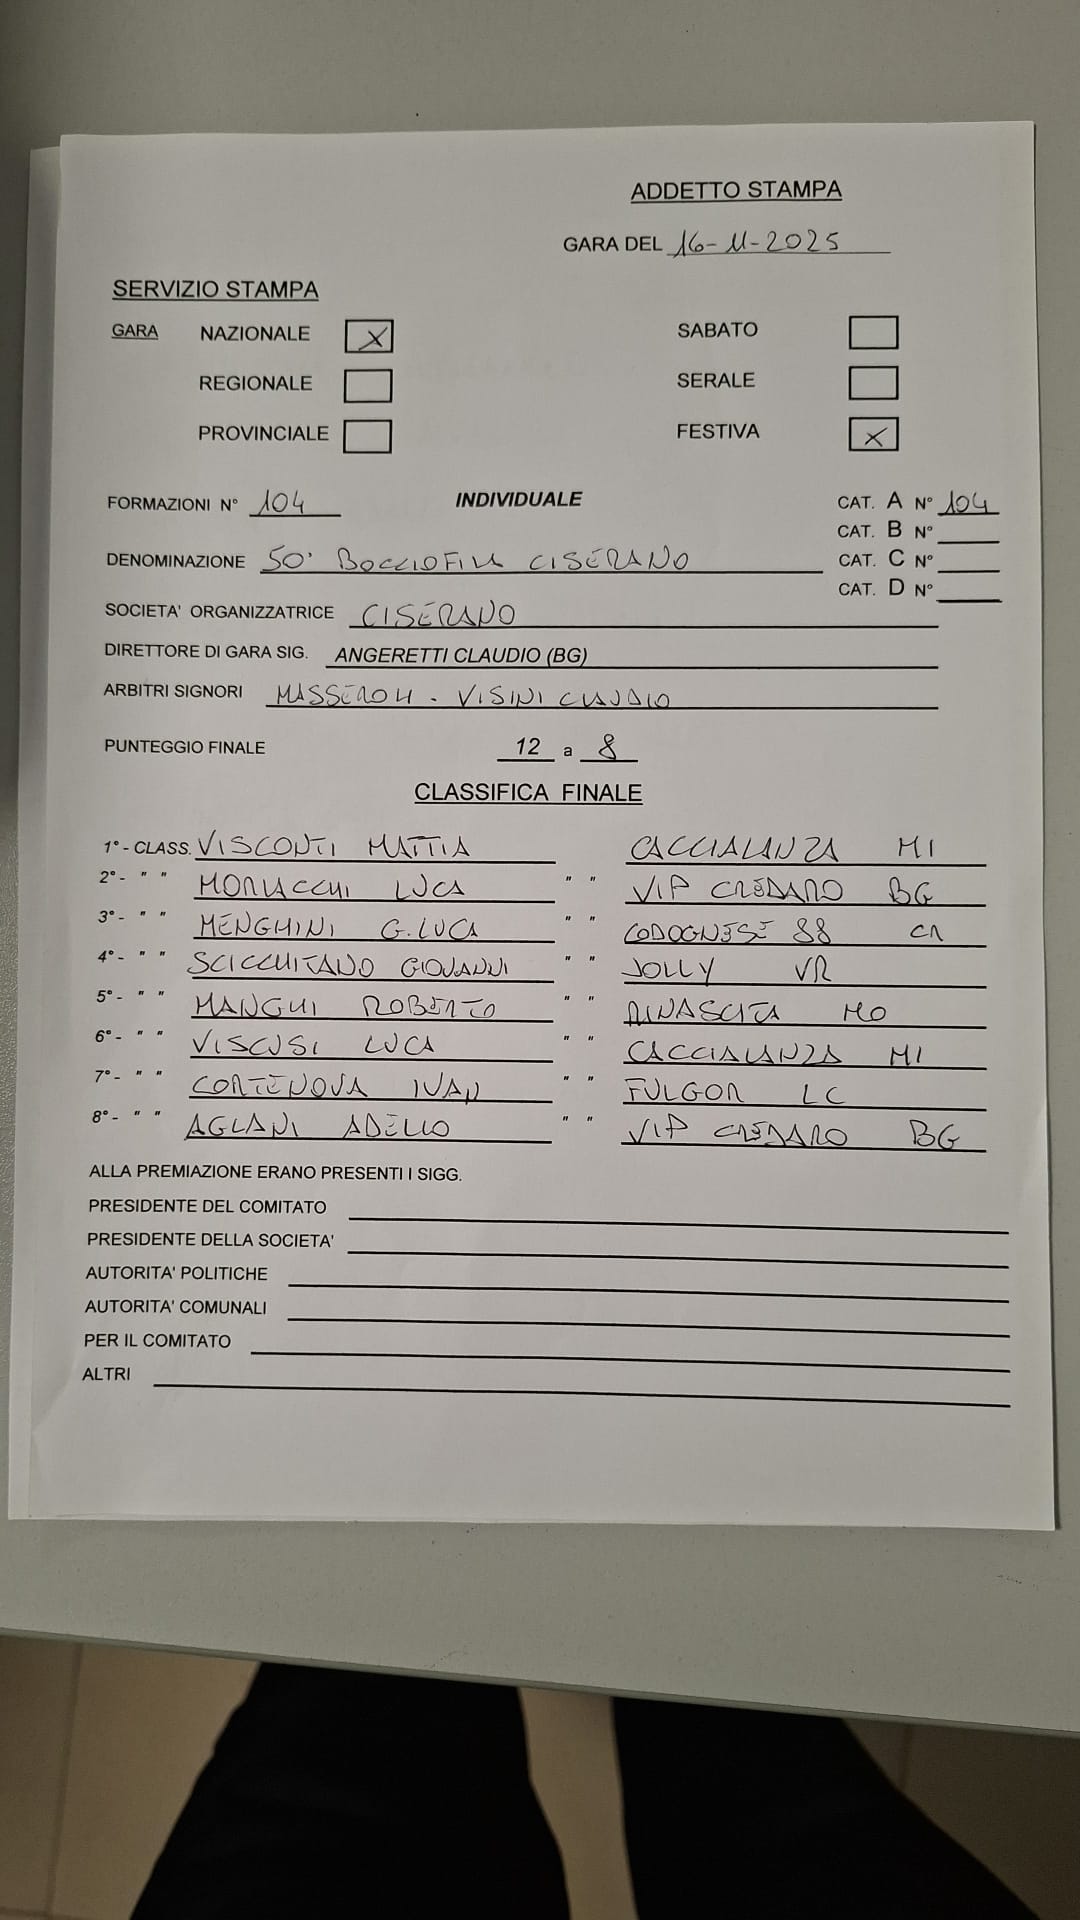 ADDETTO STAMPA
GARA DEL 16-11-2025
SERVIZIO STAMPA
GARA NAZIONALE X SABATO
REGIONALE SERALE
PROVINCIALE FESTIVA X
FORMAZIONI N° 104 INDIVIDUALE CAT. A N° 104
CAT. B N°
DENOMINAZIONE 50° BOCCIOFILA CISERANO CAT. C N°
CAT. D N°
SOCIETA' ORGANIZZATRICE CISERANO
DIRETTORE DI GARA SIG. ANGERETTI CLAUDIO (BG)
ARBITRI SIGNORI MASSEROLI - VISINI CLAUDIO
PUNTEGGIO FINALE 12 a 8
CLASSIFICA FINALE
1° - CLASS. VISCONTI MATTIA CACCIALANZA MI
2° - " " MORLACCHI LUCA " " VIP CREDARO BG
3° - " " MENGHINI G.LUCA " " CODOGNESE 88 CR
4° - " " SCICCHITANO GIOVANNI " " JOLLY VR
5° - " " MANGHI ROBERTO " " RINASCITA MO
6° - " " VISCUSI LUCA " " CACCIALANZA MI
7° - " " CORTENOVA IVAN " " FULGOR LC
8° - " " AGLANI ADELIO " " VIP CREDARO BG
ALLA PREMIAZIONE ERANO PRESENTI I SIGG.
PRESIDENTE DEL COMITATO
PRESIDENTE DELLA SOCIETA'
AUTORITA' POLITICHE
AUTORITA' COMUNALI
PER IL COMITATO
ALTRI